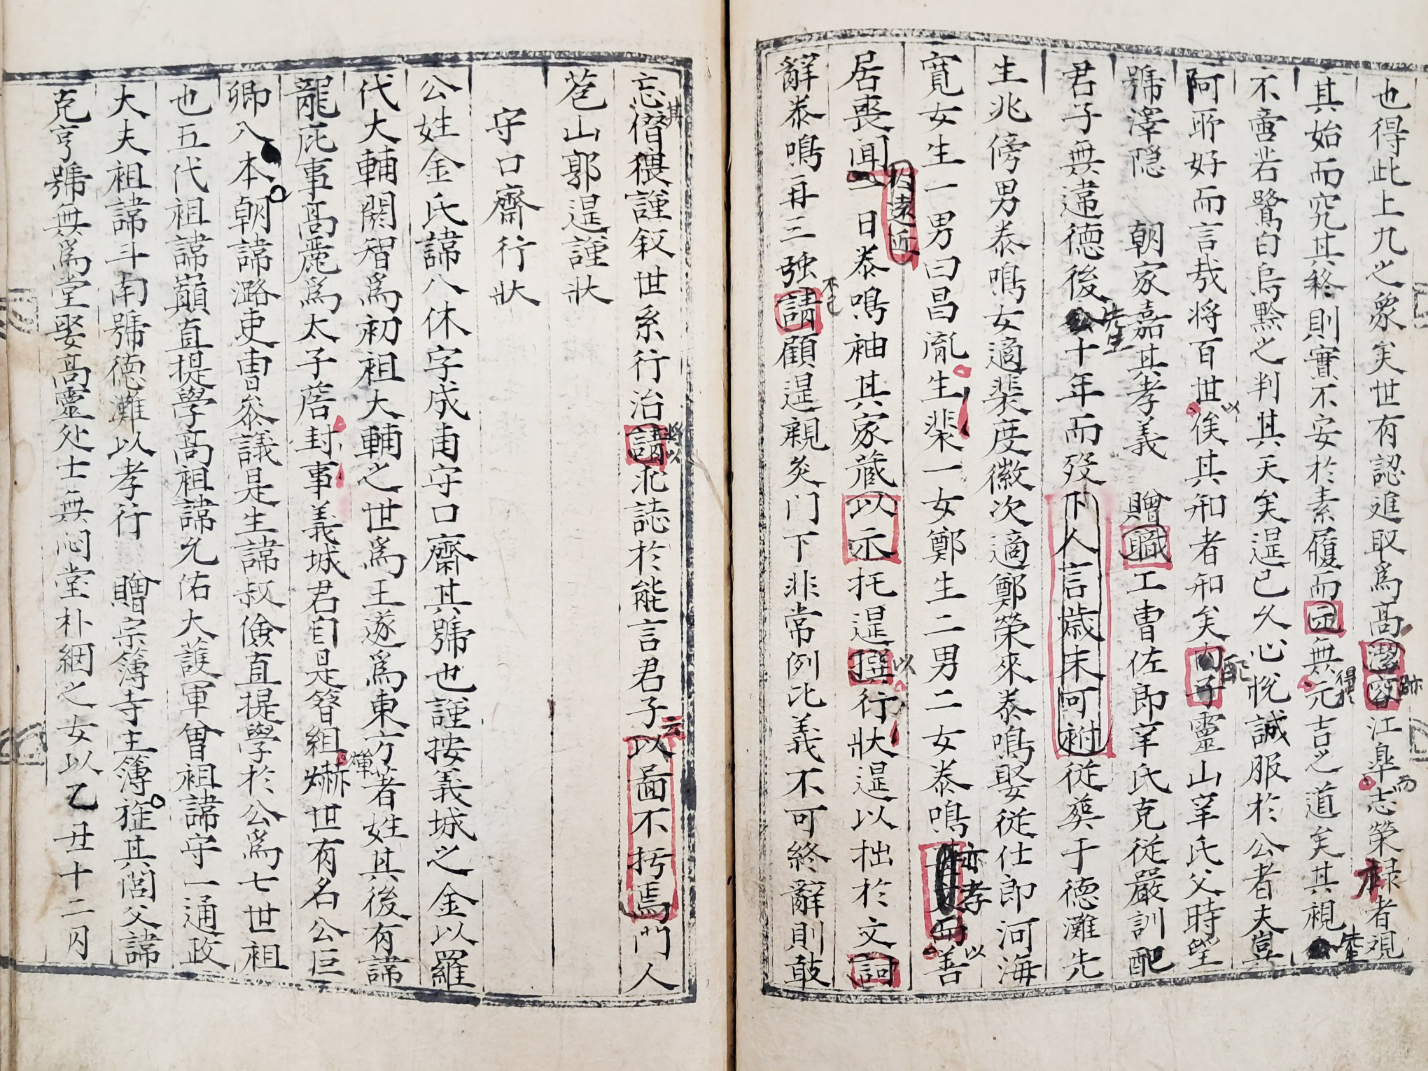 也得此上九之象矣世有認進取爲高潔容江臯志榮祿者視
其始而究其終則實不安於素履而國無元吉之道矣其視
不啻若鷺白烏黔之判其天矣湜已久心悅誠服於公者夫豈
阿所好而言哉將百世俟其知者知矣內子靈山辛氏父時望
號澤隱 朝家嘉其孝義 贈職工曺佐郎辛氏克從嚴訓配
君子無違德後公十年而歿下人言歲末可祔從葬于德灘先
生兆傍男泰鳴女適裴度徽次適鄭榮來泰鳴娶從仕郎河海
寬女生一男曰昌胤生裴一女鄭生二男二女泰鳴善
居喪聞一日泰鳴袖其家藏以示托湜撰行狀湜以拙於文詞
辭泰鳴再三強請顧湜親炙門下非常例比義不可終辭則敢
忘僭猥謹叙世系行治請此誌於能言君子以啚不朽焉門人
苞山郭湜謹狀
守口齋行狀
公姓金氏諱八休字成甫守口齋其號也謹按義城之金以羅
代大輔閼智爲初祖大輔之世爲王遂爲東方著姓其後有諱
龍庇事高麗爲太子詹封事義城君自是簪組爀世有名公巨
卿入本朝諱潞吏曺參議是生諱叔儉直提學於公爲七世祖
也五代祖諱巓直提學高祖諱允佑大護軍曾祖諱守一通政
大夫祖諱斗南號德灘以孝行 贈宗簿寺主簿旌其閭父諱
克亨號無爲堂娶高靈處士無悶堂朴絪之女以乙丑十二月